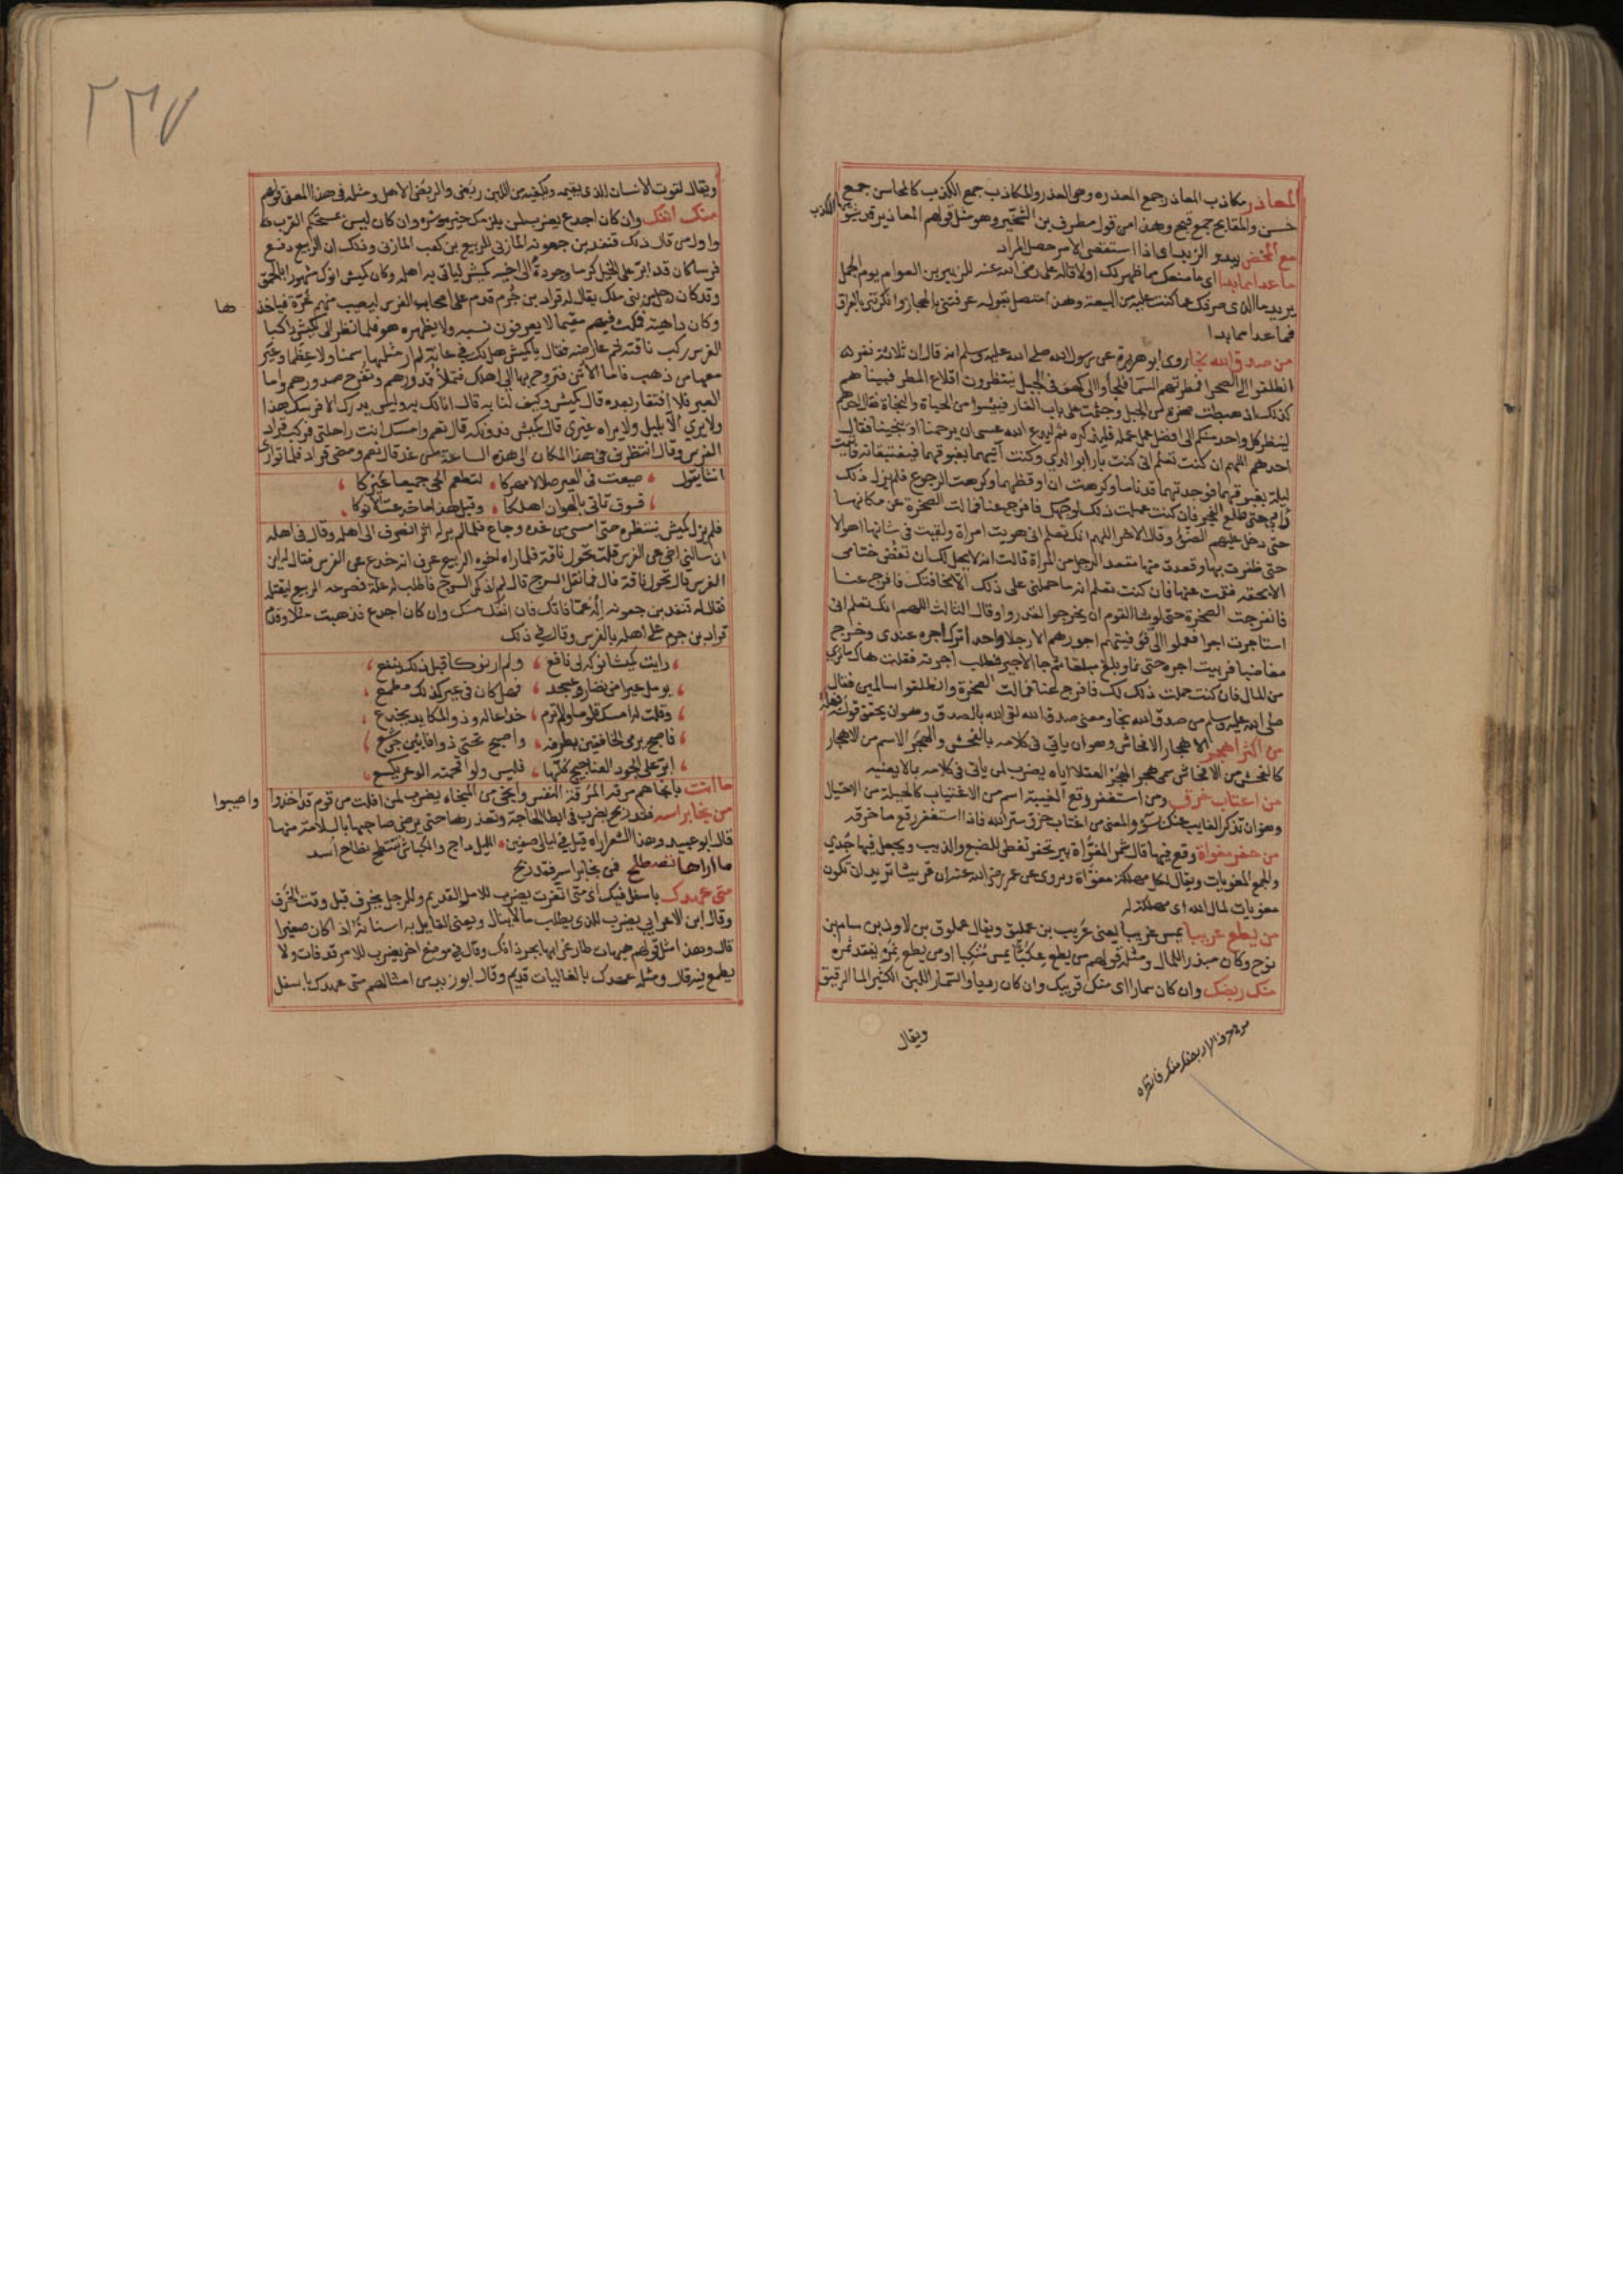 المعاذر مكاذب المعاذر جمع المعذره وهي العذر والمكاذب جمع الكذب كالمحاسن جمع
حسن والمقابح جمع قبح وهذا من قول مطرف بن الشخير وهو مثل قولهم المعاذير قد يشوبها الكذب
مع المخض يبدو الزبد اي اذا استقصي الامر حصل المراد
ما عدا مما بدا اي ما منعك مما ظهر لك اولا قاله علي رضي الله عنه للزبير بن العوام يوم الجمل
يريد ما الذي صرفك عما كنت عليه من البيعة وهذا متصل بقوله عرفتني بالحجاز وانكرتني بالعراق
فما عدا مما بدا
من صدق الله نجا روى ابو هريرة عن رسول الله صلى الله عليه وسلم انه قال ان ثلاثة نفر
انطلقوا الى الصحرا فمطرتهم السما فلجأوا الى كهف في الجبل ينتظرون اقلاع المطر فبينا هم
كذلك اذ هبطت صخرة من الجبل وجثمت على باب الغار فيئسوا من الحياة والنجاة فقال احدهم
لينظر كل واحد منكم الى افضل عمل عمله فليذكره ثم ليدع الله عسى ان يرحمنا او ينجينا فقال
احدهم اللهم ان كنت تعلم اني كنت بارا بوالدي وكنت آتيهما بغبوقهما فيغتبقانه فاتيت
ليلة بغبوقهما فوجدتهما قد ناما وكرهت ان اوقظهما وكرهت الرجوع فلم يزل ذلك
دأبي حتى طلع الفجر فان كنت عملت ذلك لوجهك فافرج عنا فمالت الصخرة عن مكانها
حتى دخل عليهم الضوء وقال الاخر اللهم انك تعلم اني هويت امراة ولقيت في شانها اهوالا
حتى ظفرت بها وقعدت منها مقعد الرجل من المراة قالت انه لا يحل لك ان تفض ختامي
الا بحقه فقمت عنها فان كنت تعلم انه ما حملني على ذلك الا مخافتك فافرج عنا
فانفرجت الصخرة حتى لو شا القوم ان يخرجوا لقدروا وقال الثالث اللهم انك تعلم اني
استاجرت اجرا فعملوا الي فوفيتهم اجورهم الا رجلا واحدا ترك اجره عندي وخرج
مغاضبا فربيت اجره حتى نما وبلغ مبلغا ثم جا الاجير فطلب اجرته فقلت هاك ما ترى
من المال فان كنت عملت ذلك لك فافرج عنا فمالت الصخرة وانطلقوا سالمين فقال
صلى الله عليه وسلم من صدق الله نجا ومعنى صدق الله لقي الله بالصدق وهو ان يحقق قوله فعله
من اكثر اهجر الاهجار الافحاش وهو ان ياتي في كلامه بالفحش والهجر الاسم من الاهجار
كالفحش من الافحاش سمي هجرا لهجر العقلا اياه يضرب لمن ياتي في كلامه بما لا يعنيه
من اغتاب خرق ومن استغفر رقع الغيبة اسم من الاغتياب كالحيلة من الاحتيال
وهو ان تذكر الغايب عنك بسوء والمعنى من اغتاب خرق ستر الله فاذا استغفر رقع ما خرقه
من حفر مغواة وقع فيها قال شمر المغواة بير تحفر تغطى للضبع والذيب ويجعل فيها جدي
والجمع المغويات ويقال لكل مهلكة مغواة ويروى عن عمر رضي الله عنه ان قريشا تريد ان تكون
مغويات لمال الله اي مهلكة له
من يطع عريبا يمس غريبا يعني عريب بن عمليق ويقال عملوق بن لاوذ بن سام بن
نوح وكان مبذرا للمال ومثله قولهم من يطع عكبا يمس منكبا او من يطع نمرة يفقد ثمره
منك ربضك وان كان سمارا اي منك قريبك وان كان رديا والسمار اللبن الكثير الما الرقيق
ويقال
ويقال لقوت الانسان الذي يقيمه ويكفيه من اللبن ربض والربض الاهل ومثله في هذا المعنى قولهم
منك انفك وان كان اجدع يضرب لمن يلزمك خيره وشره وان كان ليس بمستحكم القرب
واول من قال ذلك قنفذ بن جعونه المازني للربيع بن كعب المازني وذلك ان الربيع دفع
فرسا كان قد ابر على الخيل كرما وجودة الى اخيه كميش لياتي به اهله وكان كميش انوك مشهورا بالحمق
وقد كان رجل من بني ملك يقال له قراد بن جرم قدم على اصحاب الفرس ليصيب منهم غرة فياخذها
وكان داهية فمكث فيهم مقيما لا يعرفون نسبه ولا يظهره هو فلما نظر الى كميش راكبا
الفرس ركب ناقته ثم عارضه فقال يا كميش هل لك في عانة لم ار مثلها سمنا ولا عظما وعير
معها من ذهب فاما الاتن فتروح بها الى اهلك فتملأ قدورهم وتفرح صدورهم واما
العير فلا افتقار بعده قال كميش وكيف لنا به قال انا لك به وليس يدرك الا على فرسك هذا
ولا يرى الا بليل ولا يراه غيري قال كميش فدونكه قال نعم وامسك انت راحلتي فركب قراد
الفرس وقال انتظرني في هذا المكان الى هذه الساعة من غد قال نعم ومضى قراد فلما توارى
انشا يقول ضيعت في العير ضلالا مهركا لتطعم الحي جميعا غيركا
فسوف تاتي بالهوان اهلكا وقبل هذا ما خدعت الانوكا
فلم يزل كميش ينتظره حتى امسى من غده وجاع فلما لم ير له اثرا انصرف الى اهله وقال في نفسه
ان سالني اخي عن الفرس قلت تحول ناقة فلما راه اخوه الربيع عرف انه خدع عن الفرس فقال له اين
الفرس قال تحول ناقة قال فما فعل السرج قال لم اذكر السرج فاطلب له علة فصرعه الربيع ليقتله
فقال له قنفذ بن جعونه اله عما فاتك فان انفك منك وان كان اجدع فذهبت مثلا وقدم
قراد بن جرم على اهله بالفرس وقال في ذلك
رايت كميشا نوكه لي نافع ولم ار نوكا قبل ذلك ينفع
يومل عيرا من نضار وعسجد فهل كان في عير كذلك مطمع
وقلت له امسك قلوصي ولا ترم خداعا له وذو المكايد يخدع
فاصبح يرمي الخافقين بطرفه واصبح تحتي ذو افانين جرشع
ابر على الجرد العناجيج كلها فليس ولو اقحمته الوعر يكسع
ما انت بانجاهم مرقه المرقة النفس وانجى من النجاه يضرب لمن افلت من قوم قد اخذوا واصيبوا
من نجا براسه فقد ربح يضرب في ابطا الحاجة وتعذرها حتى يرضى صاحبها بالسلامة منها
قال ابو عبيد وهذا الشعر اراه قيل في ليالي صفين الليل داج والكباش تنتطح نطاح اسد
ما اراها تصطلح فمن نجا براسه فقد ربح
متى عهدك باسفل فيك اي متى اثغرت يضرب للامر القديم وللرجل يخرف قبل وقت الخرف
وقال ابن الاعرابي يضرب للذي يطلب ما لا ينال ويعني القايل به اسنانه اذ اكان صغيرا
قال وهذا مثل قولهم هيهات طار غرابها بجرادتك وقال في موضع اخر يضرب للامر قد فات ولا
يطمع فيه قال ومثله عهدك بالغاليات قديم وقال ابو زيد من امثالهم متى عهدك باسفل
٢٣٧